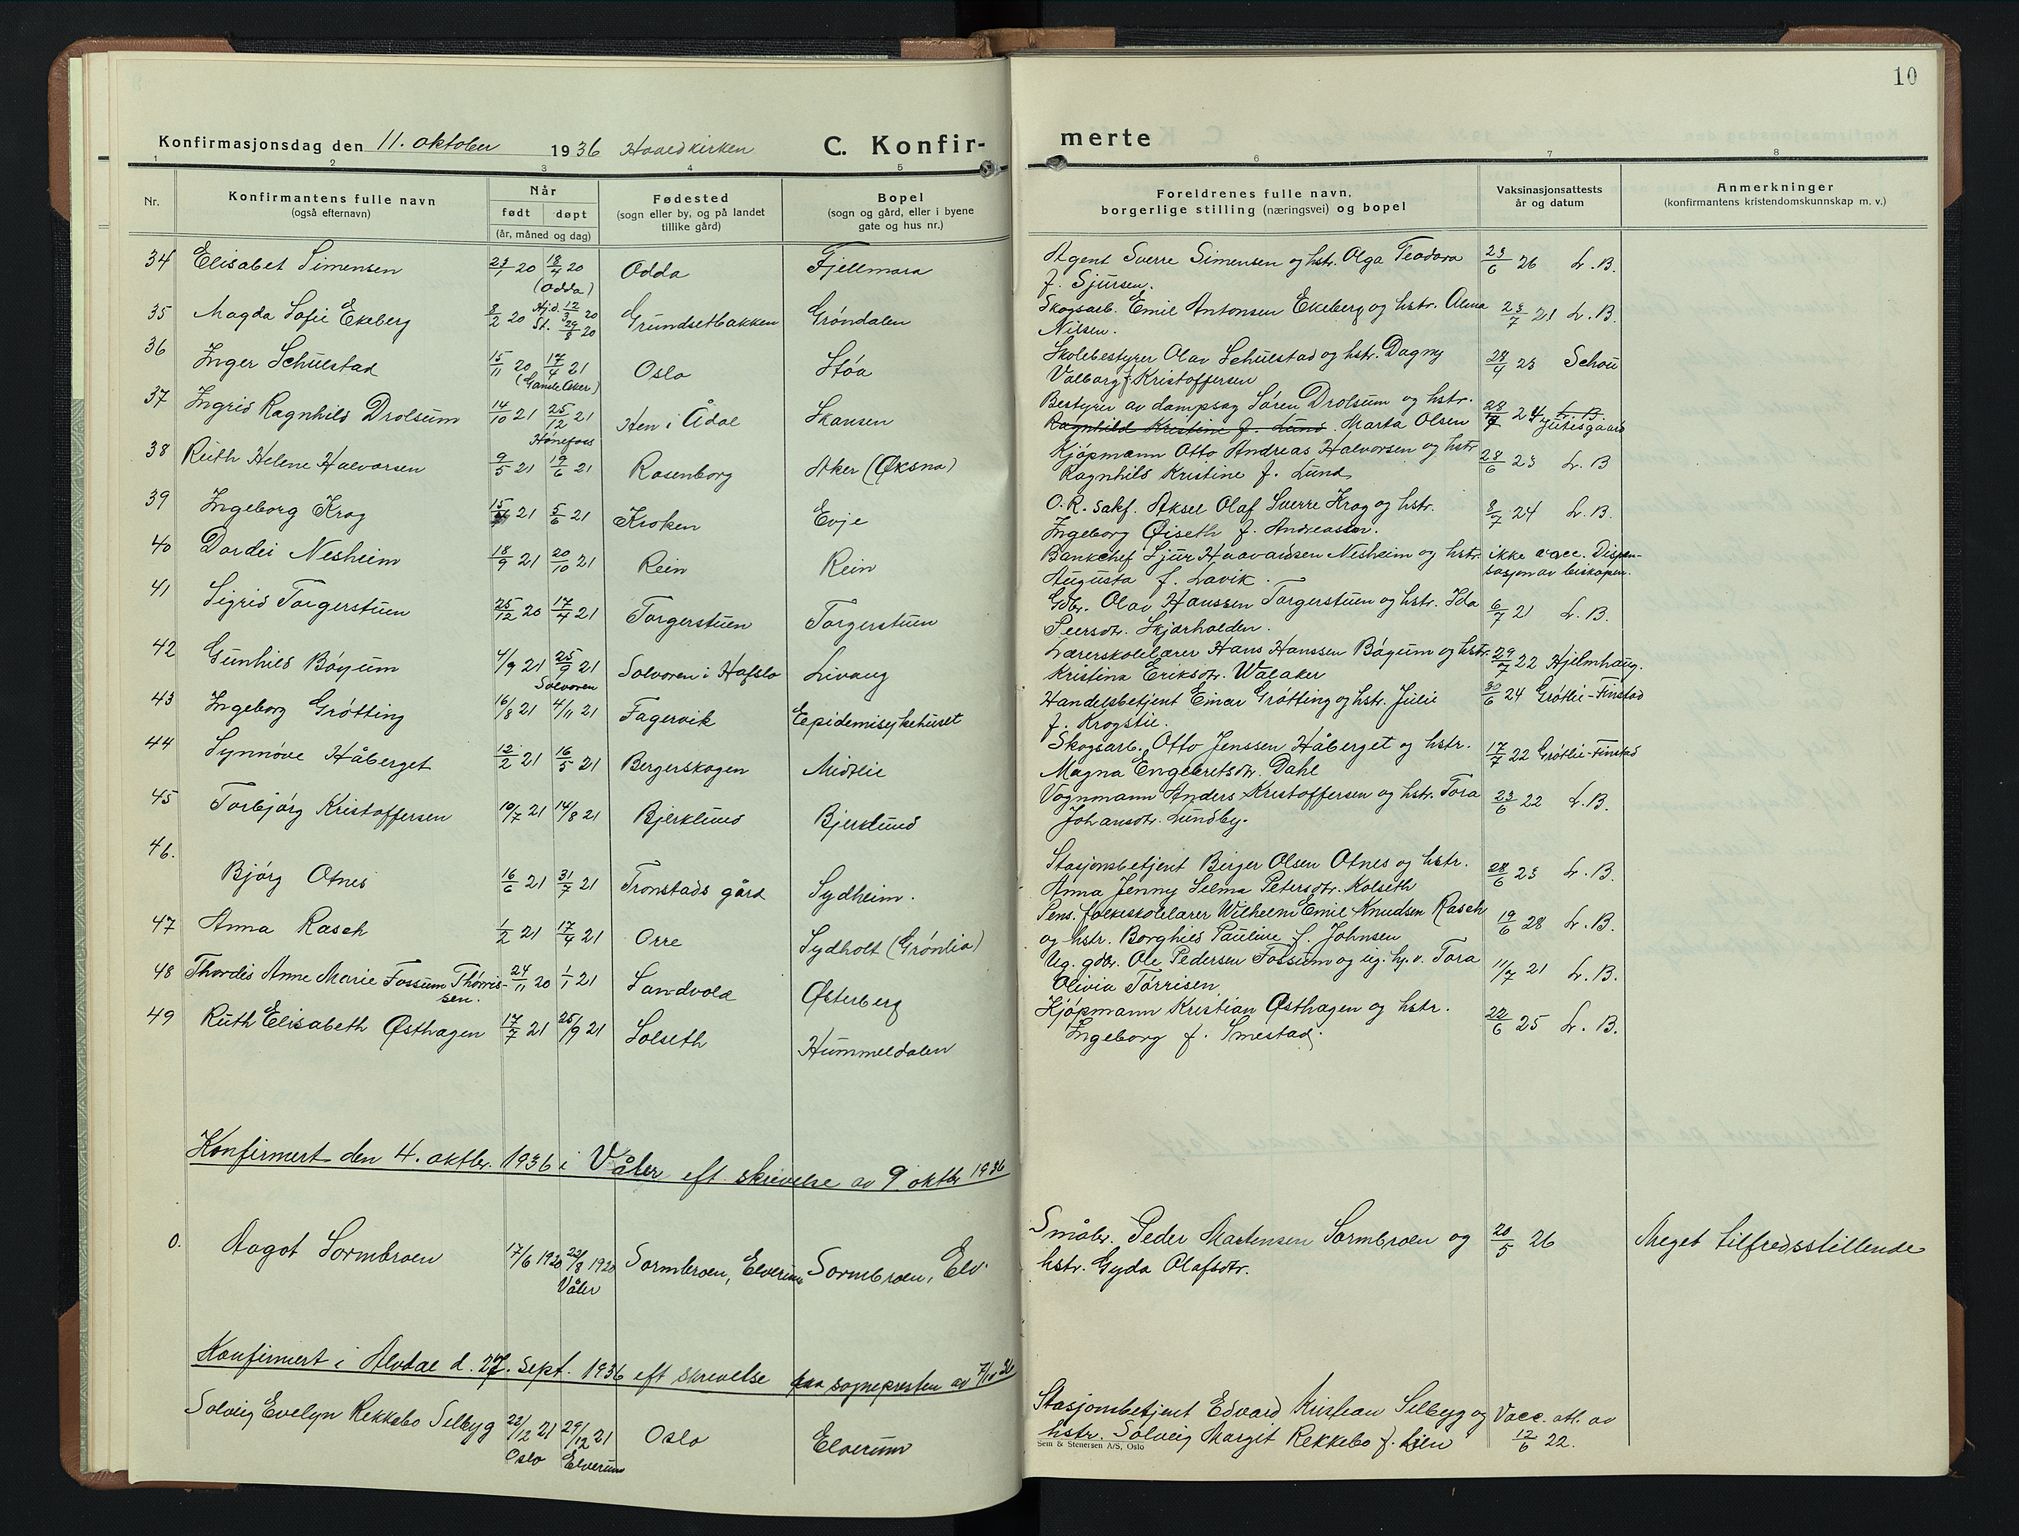 10
Konfirmasjonsdag den 11. oktober 1936 Hovedkirken C. Konfir-
merte
1 2 3 4 5
6 7 8
Nr.
Konfirmantens fulle navn
(også efternavn)
Når
født døpt
(år, måned og dag)
Fødested
(sogn eller by, og på landet
tillike gård)
Bopel
(sogn og gård, eller i byene
gate og hus nr.)
Foreldrenes fulle navn,
borgerlige stilling (næringsvei) og bopel
Vaksinasjonsattests
år og datum
Anmerkninger
(konfirmantens kristendomskunnskap m. v.)
34 Elisabet Simensen 23/1 20 18/4 20 (Odda) Odda Fjellmora
Agent Sverre Simensen og hstr. Olga Teodora
f. Sjursen. 23/6 26 L. B.
35 Magda Sofie Ekeberg 8/2 20 Hjd. 12/3 20 St. 29/8 20 Grundsetbakken Grøndalen
Skogsarb. Emil Antonsen Ekeberg og hstr. Alma
Nilsen. 23/7 21 L. B.
36 Inger Schulstad 15/11 20 17/4 21 (Gamle Aker) Oslo Støa
Skolebestyrer Olav Schulstad og hstr. Dagny
Valborg f. Kristoffersen 28/4 23 Schou
37 Ingrid Ragnhild Drolsum 14/10 21 25/12 21 Hønefoss Hen i Ådal Skansen
Bestyrer av dampsag Søren Drolsum og hstr.
Ragnhild Kristine f. Lund. Marta Olsen 24 L. B.
38 Ruth Helene Halvorsen 9/5 21 19/6 21 Rosenborg Aker (Øksna)
Kjøpmann Otto Andreas Halvorsen og hstr
Ragnhild Kristine f. Lund 28/6 23 L. B
39 Ingeborg Krog 21 5/6 21 Kroken Evje
O. R. sakf. Aksel Olaf Sverre Krog og hstr.
Ingeborg Øiseth f. Andreassen. 8/7 24 L. B.
40 Dordei Nesheim 18/9 21 20/10 21 Rein Rein
Bankchef Sjur Haavardsen Nesheim og hstr.
Augusta f. Lavik. ikke vacc. Dispen-
sasjon av biskopen.
41 Sigrid Torgerstuen 25/12 20 17/4 21 Torgerstuen Torgerstuen
Gdbr. Olav Hanssen Torgerstuen og hstr. Ida
Peersdtr. Skjærholden. 6/7 21 L. B.
42 Gunhild Bøyum 4/9 21 25/9 21 Solvoren Solvoren i Hafslo Livang
Lærerskolelærer Hans Hanssen Bøyum og hstr.
Kristina Eriksdtr. Walaker 29/7 22 Hjelmhaug.
43 Ingeborg Grøtting 16/8 21 4/11 21 Fagervik Eepidemisykehuset
Handelsbetjent Einar Grøtting og hstr. Julie
f. Krogstie. 30/6 24 Grøtlie-Finstad
44 Synnøve Håberget 12/2 21 16/5 21 Bergerskogen Midtlie
Skogsarb. Otto Jenssen Håberget og hstr.
Magna Engebretsdtr. Dahl 17/7 22 Grøtlie-Finstad
45 Torbjørg Kristoffersen 10/7 21 14/8 21 Bjerklund Bjerklund
Vognmann Anders Kristoffersen og hstr. Tora
Johansdtr. Lundby. 23/6 22 L. B.
46. Bjørg Otnes 16/6 21 31/7 21 Tronstads gård Sydheim.
Stasjonsbetjent Birger Olsen Otnes og hstr.
Anna Jenny Selma Petersdtr. Kolseth 28/6 23 L. B.
47 Anna Rasch 1/2 21 17/4 21 Orre Sydholt (Grønlia)
Pens. folkeskolelærer Wilhelm Emil Knudsen Rasch
og hstr. Borghild Pauline f. Johnsen 19/6 28 L. B.
48 Thordis Anne Marie Fossum Thørris-
sen. 24/11 20 1/1 21 Sandvold Østerberg
Ug. gdbr. Ole Pedersen Fossum og ug. hj. v. Tora
Olivia Tørrisen 11/7 21 L. B.
49 Ruth Elisabeth Østhagen 17/7 21 25/9 21 Solseth Hummeldalen
Kjøpmann Kristian Østhagen og hstr.
Ingeborg f. Smestad. 22/6 25 L. B.
Konfirmert den 4. oktbr. 1936 i Våler eft skrivelse av 9. oktbr 1936
0. Aagot Sormbroen 17/6 1920 22/8 1920 Våler Sormbroen, Elverum Sormbroen, Elv.
Småbr. Peder Martensen Sormbroen og
hstr. Gyda Olafsdtr. 20/5 26 Meget tilfredsstillende
Konfirmert i Alvdal d. 27. sept. 1936 eft skrivelse fra sognepresten av 7/10 36
Solveig Evelyn Rekkebo Selbyg 22/12 21 Oslo 29/12 21 Elverum Oslo Elverum
Stasjonsbetjent Edvard Kristian Selbyg og
hstr. Solveig Margit Rekkebo f. Lien Vacc. att. av
12/6 22.
Sem & Stenersen A/S, Oslo